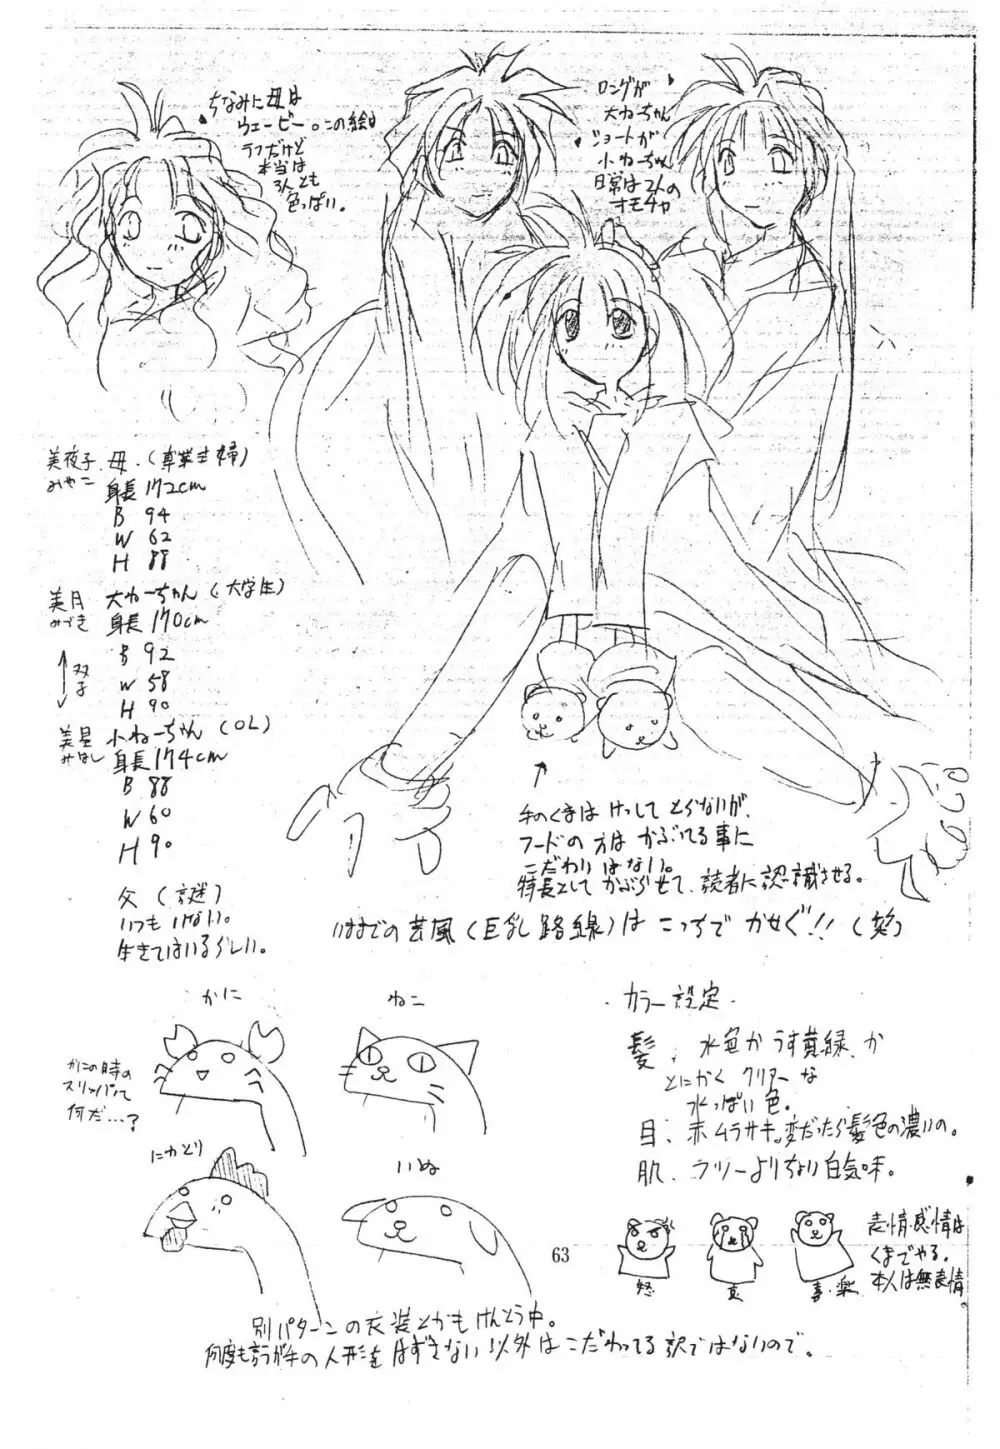 ちなみに母は
ウェービー。この絵は
ラフだけど
本当は
3人とも
色っぽい。
ロングが
大ねーちゃん
ショートが
小ねーちゃん
日常は2人の
オモチャ
美夜子 母.(専業主婦)
みやこ 身長172cm
B 94
W 62
H 88
美月 大ねーちゃん(大学生)
みづき 身長170cm
B 92
W 58
H 90
双子
美星 小ねーちゃん(OL)
みほし 身長174cm
B 88
W 60
H 90
父(謎)
いつもいない。
生きてはいるらしい。
手のくまは けっして とらないが、
フードの方は かぶってる事に
こだわりはない。
特長として かぶらせて、読者に認識させる。
いままでの芸風(巨乳路線)は こっちで かせぐ!!(笑)
かに
ねこ
かにの時の
スリッパって
何だ…?
にわとり
いぬ
・カラー設定・
髪、水色かうす黄緑、か
とにかく クリアーな
水っぽい色。
目、赤ムラサキ。変だったら髪色の濃いの。
肌、フツーよりちょい白気味。
怒
哀
喜・楽
表情・感情は
くまでやる。
本人は無表情。
63
別パターンの衣装とかもけんとう中。
何度も言うが手の人形をはずさない以外はこだわってる訳ではないので。